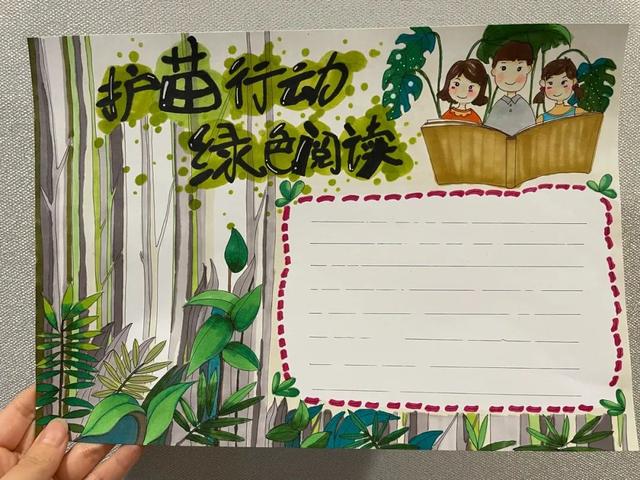 护苗行动
绿色阅读